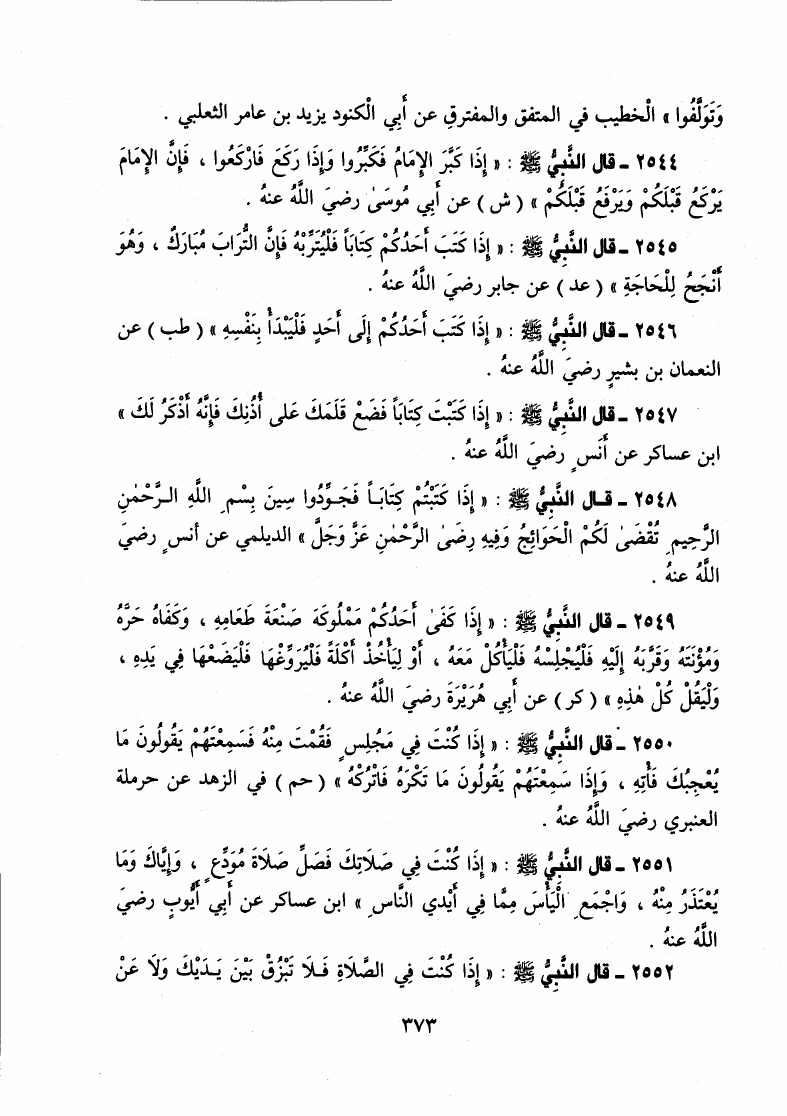 وَتَوَلَّفُوا » الْخطيب في المتفق والمفترقِ عن أَبِي الْكنود يزيد بن عامر الثعلبي .
٢٥٤٤ ـ قال النَّبِيُّ ﷺ : « إِذَا كَبَّرَ الإِمَامُ فَكَبِّرُوا وَإِذَا رَكَعَ فَارْكَعُوا ، فَإِنَّ الإِمَامَ
يَرْكَعُ قَبْلَكُمْ وَيَرْفَعُ قَبْلَكُمْ » ( ش ) عن أَبي مُوسَىٰ رضيَ اللَّهُ عنهُ .
٢٥٤٥ ـ قال النَّبِيُّ ﷺ : « إِذَا كَتَبَ أَحَدُكُمْ كِتَاباً فَلْيُتَرِّبْهُ فَإِنَّ التُّرَابَ مُبَارَكٌ ، وَهُوَ
أَنْجَحُ لِلْحَاجَةِ » ( عد ) عن جابر رضيَ اللَّهُ عنهُ .
٢٥٤٦ ـ قال النَّبِيُّ ﷺ : « إِذَا كَتَبَ أَحَدُكُمْ إِلَى أَحَدٍ فَلْيَبْدَأْ بِنَفْسِهِ » ( طب ) عن
النعمان بن بشيرٍ رضيَ اللَّهُ عنهُ .
٢٥٤٧ ـ قال النَّبِيُّ ﷺ : « إِذَا كَتَبْتَ كِتَاباً فَضَعْ قَلَمَكَ عَلى أُذُنِكَ فَإِنَّهُ أَذْكَرُ لَكَ »
ابن عساكر عن أَنَسٍ رضيَ اللَّهُ عنهُ .
٢٥٤٨ ـ قـال النَّبِيُّ ﷺ : « إِذَا كَتَبْتُمْ كِتَابـاً فَجَـوِّدُوا سِينَ بِسْمِ اللَّهِ الـرَّحْمٰنِ
الرَّحِيمِ تُقْضَىٰ لَكُمْ الْحَوَائِجُ وَفِيهِ رِضَىٰ الرَّحْمٰنِ عَزَّ وَجَلَّ » الديلمي عن أنسٍ رضيَ
اللَّهُ عنهُ .
٢٥٤٩ ـ قال النَّبِيُّ ﷺ : « إِذَا كَفَىٰ أَحَدَكُمْ مَمْلُوكَهُ صَنْعَةَ طَعَامِهِ ، وَكَفَاهُ حَرَّهُ
وَمُؤْنَتَهُ وَقَرَّبَهُ إِلَيْهِ فَلْيُجْلِسْهُ فَلْيَأْكُلْ مَعَهُ ، أَوْ لِيَأْخُذْ أُكْلَةً فَلْيُرَوِّغْهَا فَلْيَضَعْهَا فِي يَدِهِ ،
وَلْيَقُلْ كُلْ هٰذِهِ » ( كر ) عن أَبِي هُرَيْرَةَ رضيَ اللَّهُ عنهُ .
٢٥٥٠ ـ قال النَّبِيُّ ﷺ : « إِذَا كُنْتَ فِي مَجْلِسٍ فَقُمْتَ مِنْهُ فَسَمِعْتَهُمْ يَقُولُونَ مَا
يُعْجِبُكَ فَأْتِهِ ، وَإِذَا سَمِعْتَهُمْ يَقُولُونَ مَا تَكْرَهُ فَاتْرُكْهُ » ( حم ) في الزهد عن حرملة
العنبري رضيَ اللَّهُ عنهُ .
٢٥٥١ ـ قال النَّبِيُّ ﷺ : « إِذَا كُنْتَ فِي صَلَاتِكَ فَصَلِّ صَلَاةَ مُوَدِّعٍ ، وَإِيَّاكَ وَمَا
يُعْتَذَرُ مِنْهُ ، وَاجْمَعِ الْيَأْسَ مِمَّا فِي أَيْدِي النَّاسِ » ابن عساكر عن أَبي أَيُّوبٍ رضيَ
اللَّهُ عنهُ .
٢٥٥٢ ـ قال النَّبِيُّ ﷺ : « إِذَا كُنْتَ فِي الصَّلَاةِ فَـلَا تَبْزُقْ بَيْنَ يَـدَيْكَ وَلَا عَنْ
٣٧٣